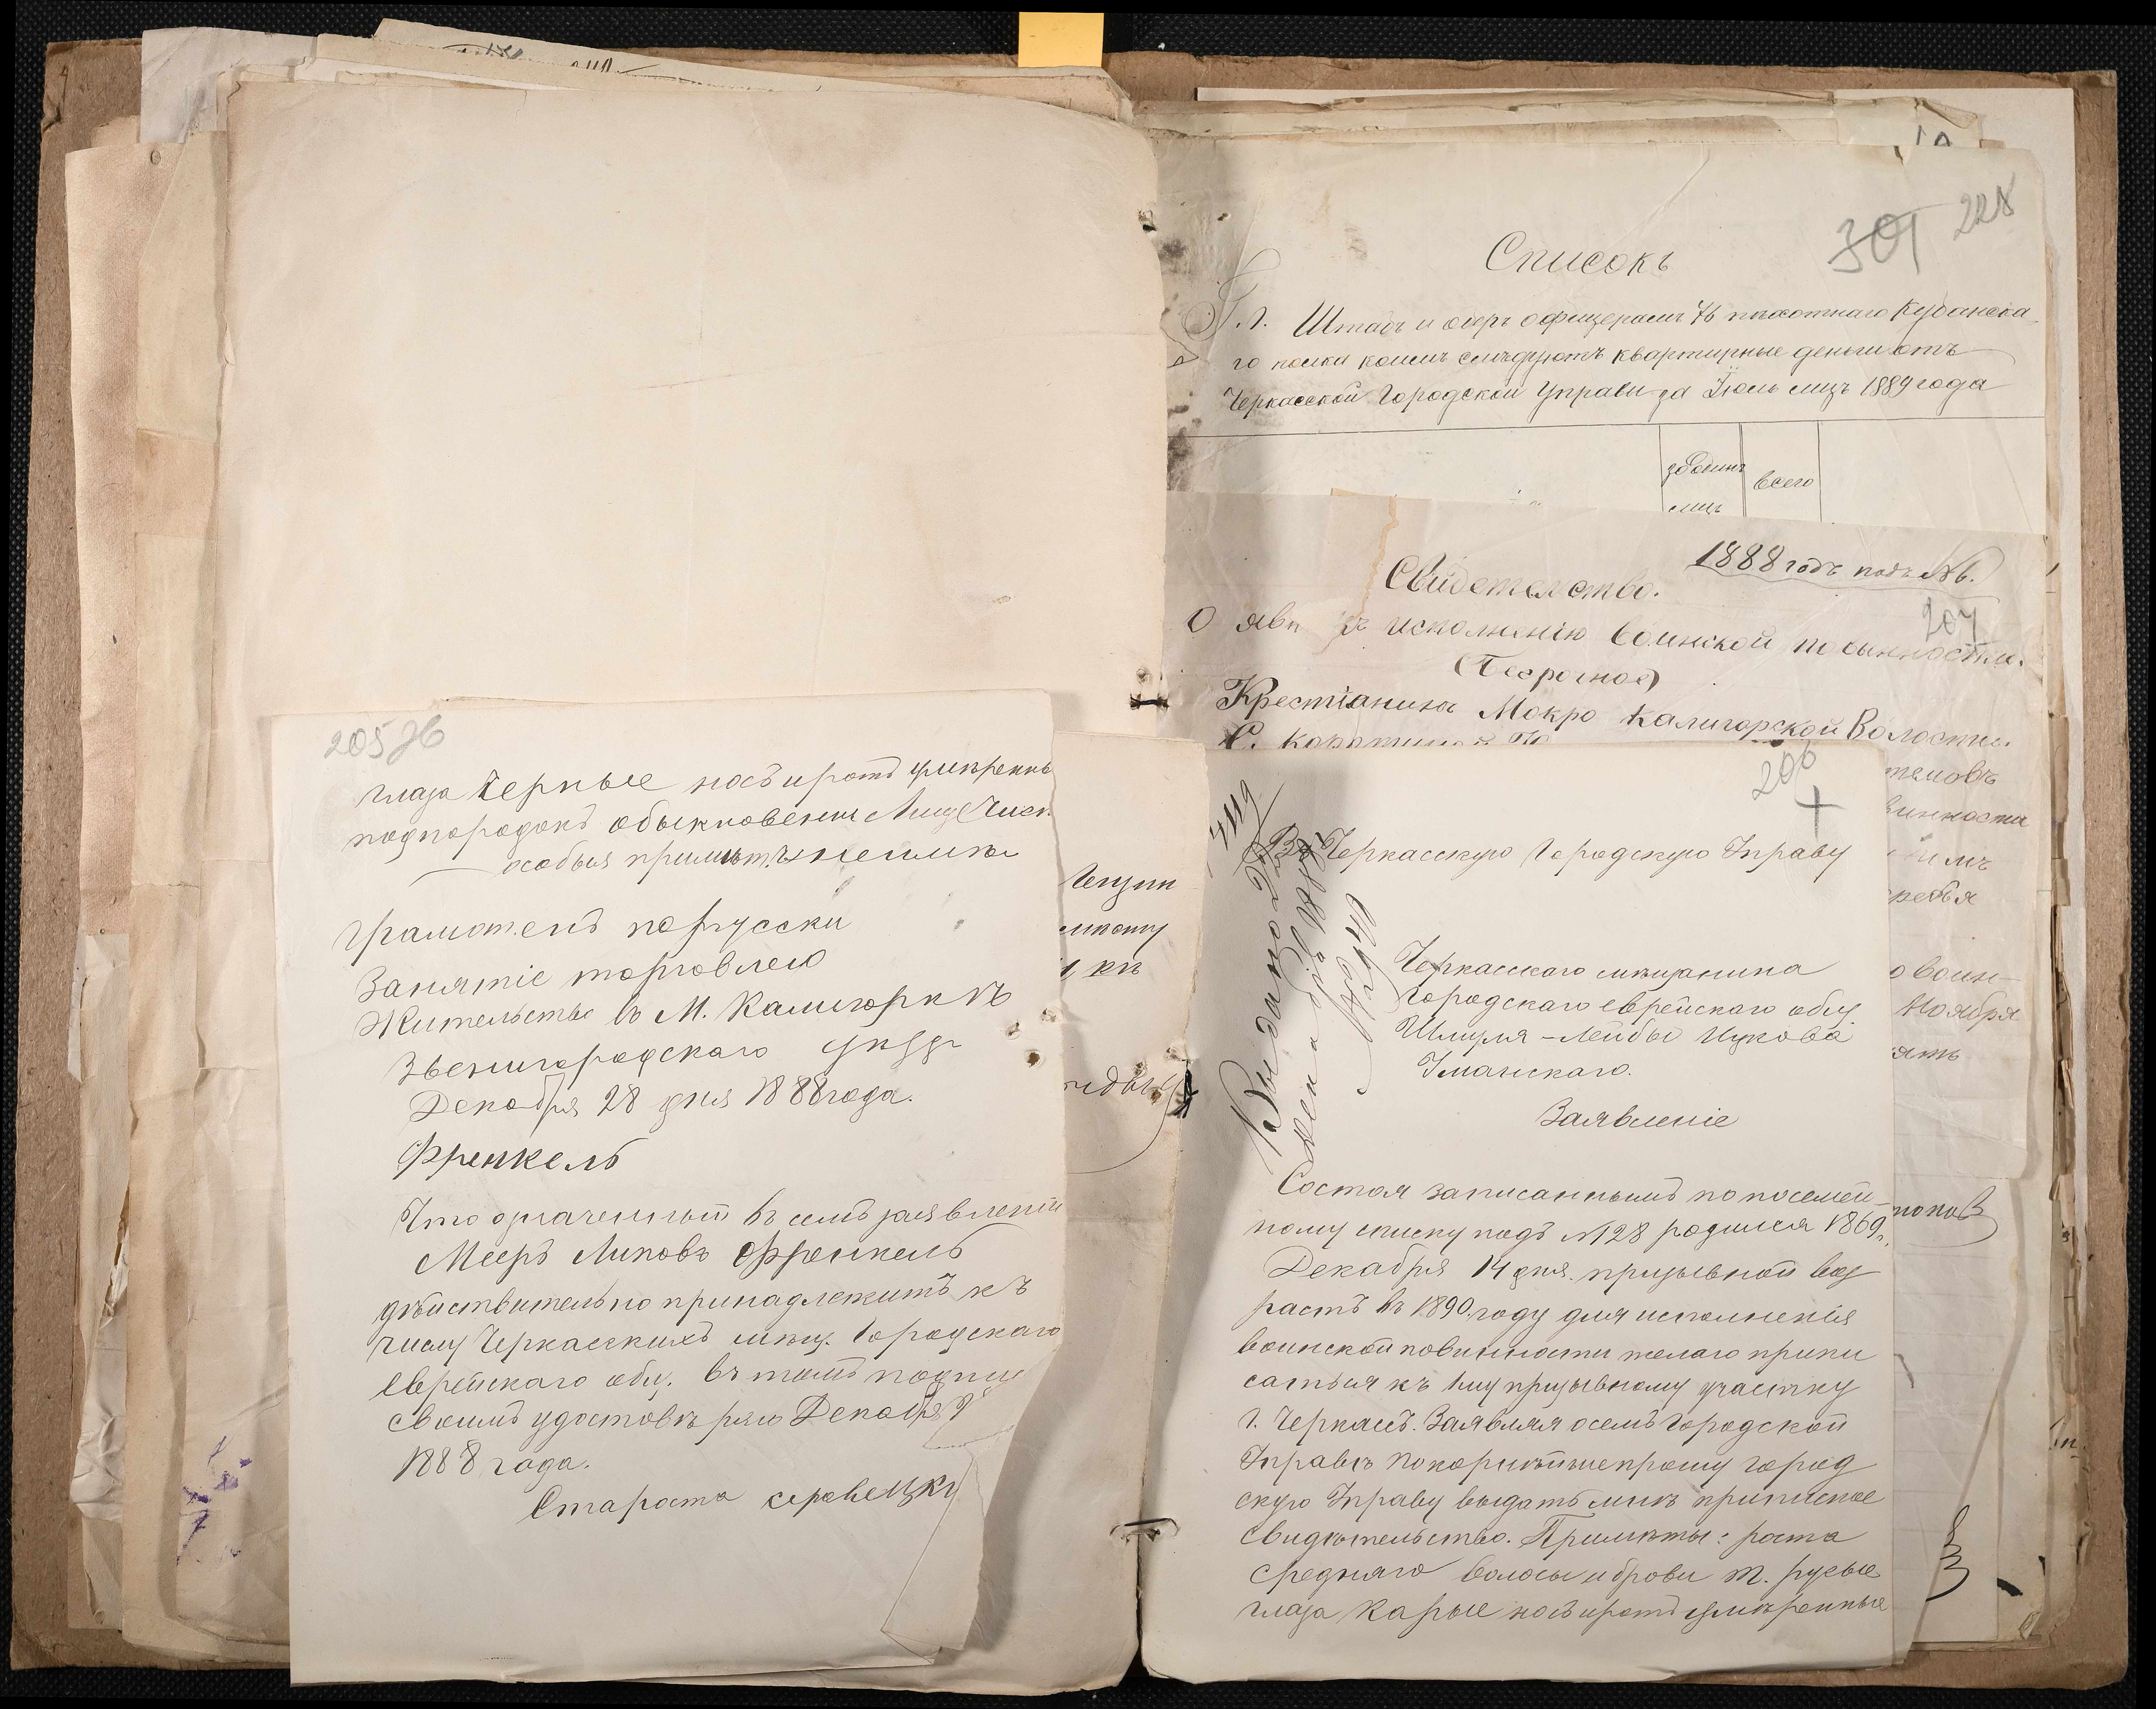 205 об
глаза черные носъ и ротъ умѣренны
подпородокъ обыкновенны Лице Чист.
особыя примѣтъ не имѣю
Грамотенъ по русски
Занятіе торговлею
Жительство въ М. Калигоркѣ
Звенигородскаго уѣзда
Декабря 28 дня 1888 года.
Френкель
Что означенный въ семъ заявленіи
Мееръ Липовъ Френкель
дѣйствительно принадлежитъ къ
числу Черкасскихъ мѣщ. Городскаго
Еврейскаго общ. въ томъ подпи
своимъ удостовѣряю Декабря
1888 года.
Староста
Списокъ
301 228
Гг. Штабъ и оберъ офицерамъ 76 пѣхотнаго Кубанска
го полка коимъ слѣдуютъ квартирные деньги отъ
Черкасской Городской Управы за Іюль мцъ 1889 года
за одинъ
мцъ
всего
1888 годъ подъ №6.
Свидетельство.
207
О явк къ исполненію воинской повинности.
(Безсрочное)
Крестіанина Мокро Калигорской Волости.
206
Въ Черкасскую Городскую Управу
Черкасскаго мѣщанина
Городскаго еврейскаго общ
Шмуля-Лейбы Ицкова
Уманскаго.
Заявленіе
Состоя записаннымъ по посемей-
ному списку подъ №128 родился 1869 г.
Декабря 14 дня. призывной воз
растъ въ 1890 году для исполненія
воинской повинности желаю припи
саться къ 1му призывному участку
г. Черкасъ. Заявляя о семъ Городской
Управѣ покорнѣйше прошу город
скую Управу выдать мнѣ приписное
свидѣтельство. Примѣты: роста
средняго волосы и брови т. русые
глаза карые носъ и ротъ умѣренные
Ноября